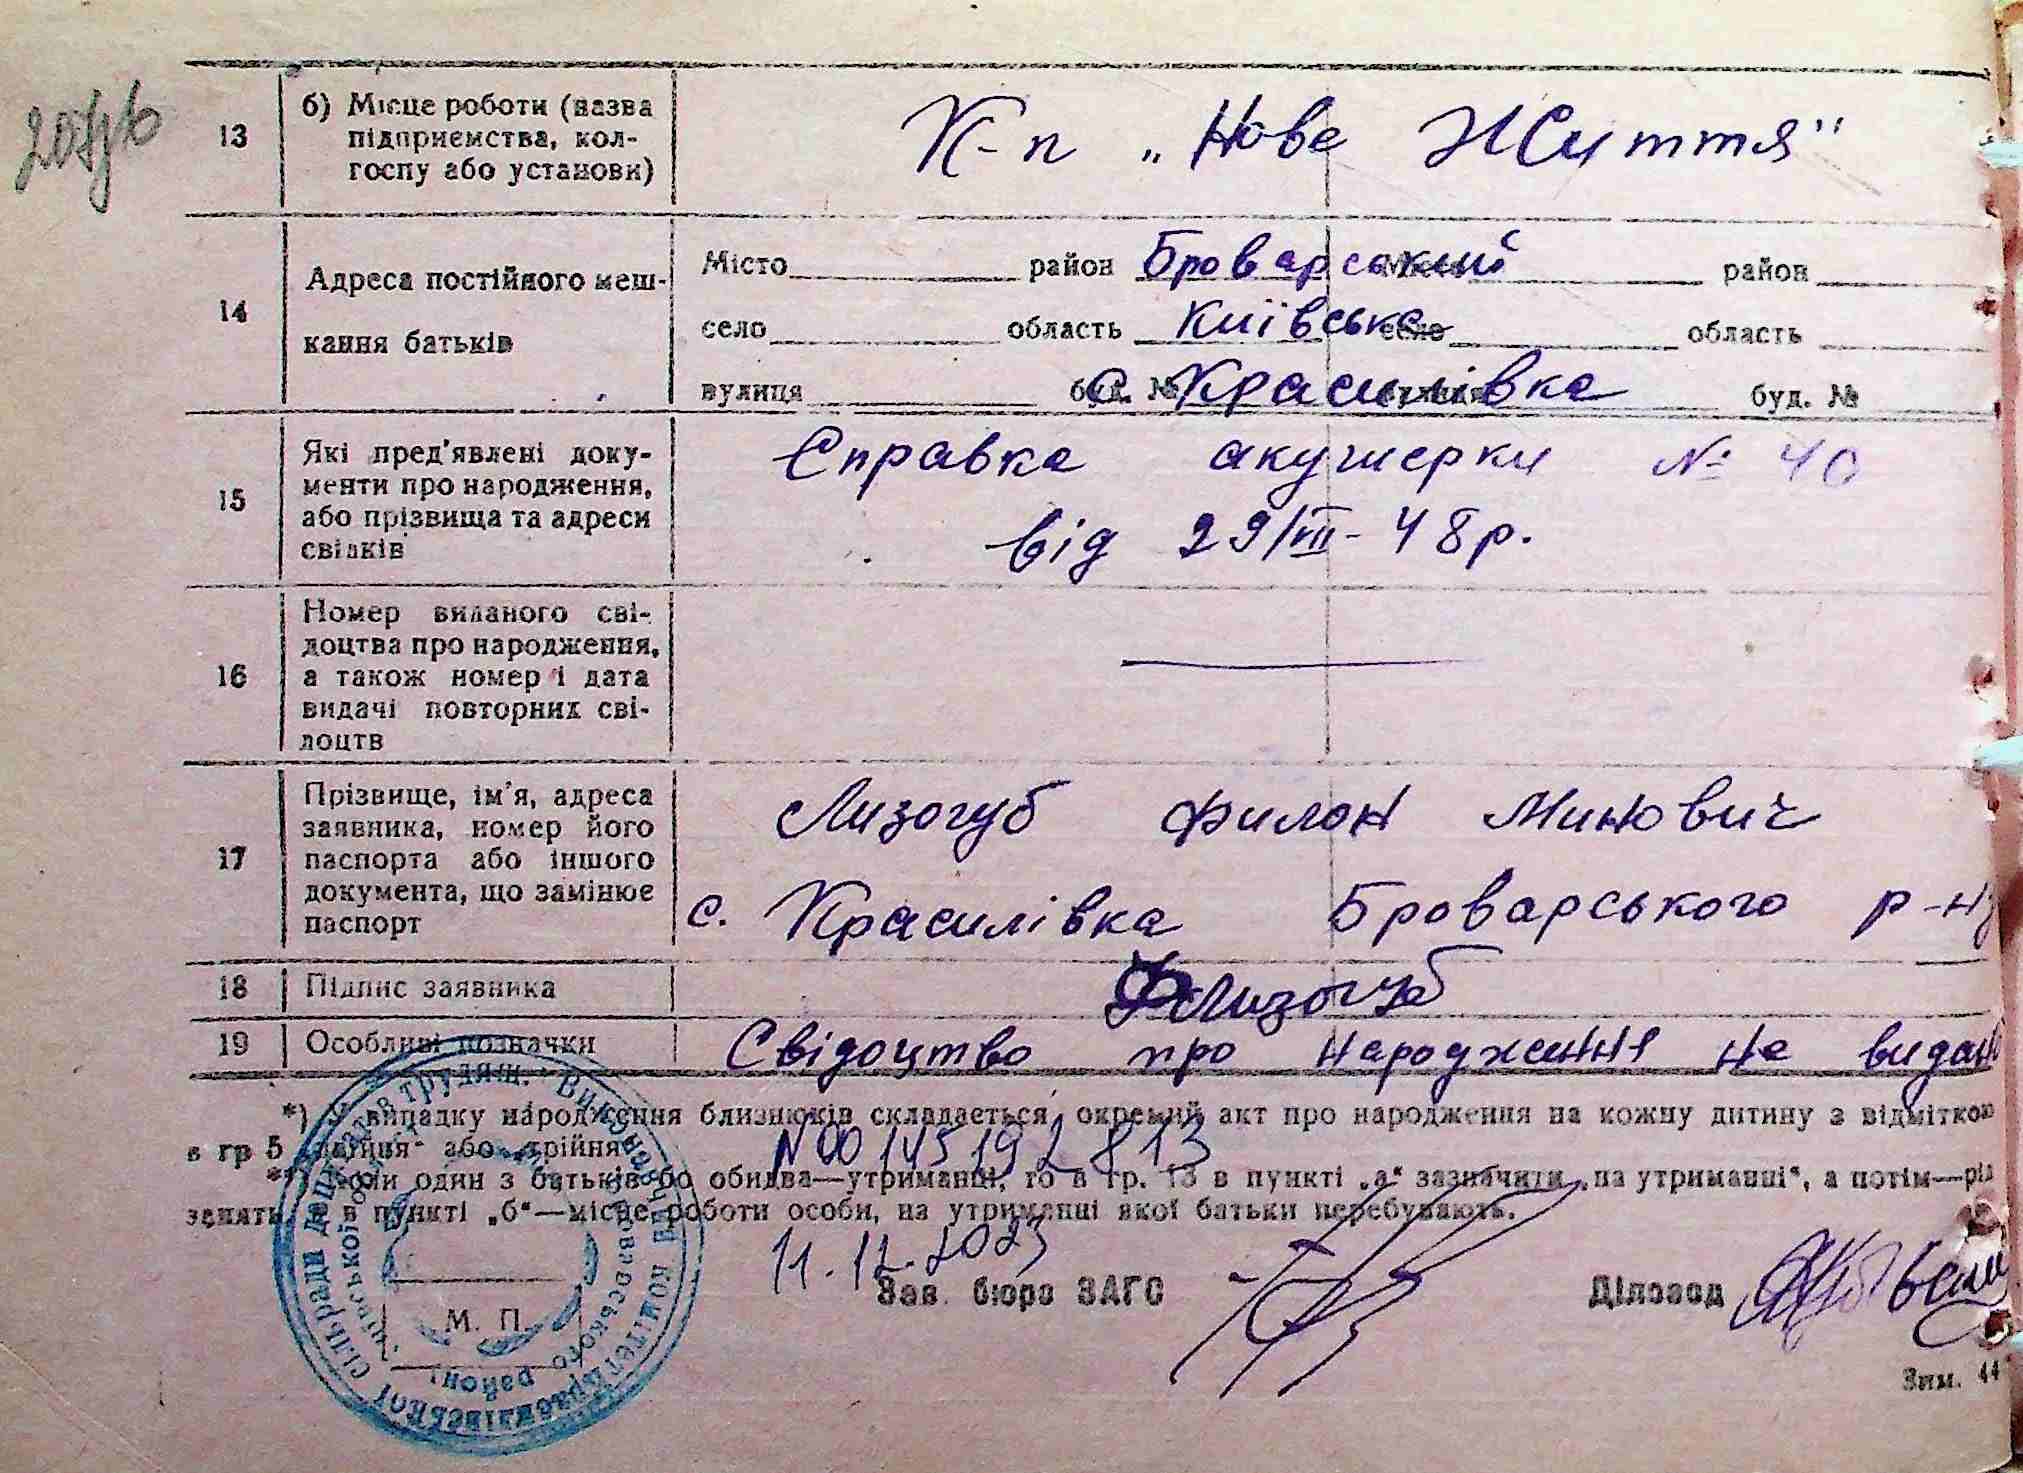 13
б) Місце роботи (назва
підприємства, кол-
госпу або установи)
К-п „Нове Життя"
14
Адреса постійного меш-
кання батьків
Місто район Броварський Місто район
село область Київська село область
вулиця буд. № с. Красилівка вулиця буд. №
15
Які пред'явлені доку-
менти про народження,
або прізвища та адреси
свідків
Справка акушерки № 40
від 29/VII-48р.
16
Номер виданого сві-
доцтва про народження,
а також номер і дата
видачі повторних сві-
доцтв
17
Прізвище, ім'я, адреса
заявника, номер його
паспорта або іншого
документа, що замінює
паспорт
Лизогуб Филон Минович
с. Красилівка Броварського р-ну
18
Підпис заявника
Лизогуб
19
Особливі позначки
Свідоцтво про народження не видано
*) У випадку народження близнюків складається окремий акт про народження на кожну дитину з відміткою
в гр 5 „двійня" або „трійня"
№00145192813
**) Коли один з батьків або обидва—утриманці, то в гр. 13 в пункті „а" зазначити „на утриманні", а потім—
зенять, а в пункті „б"—місце роботи особи, на утриманні якої батьки перебувають.
11.12.2023
Зав. бюро ЗАГС
Діловод
М. П.
Зим. 44